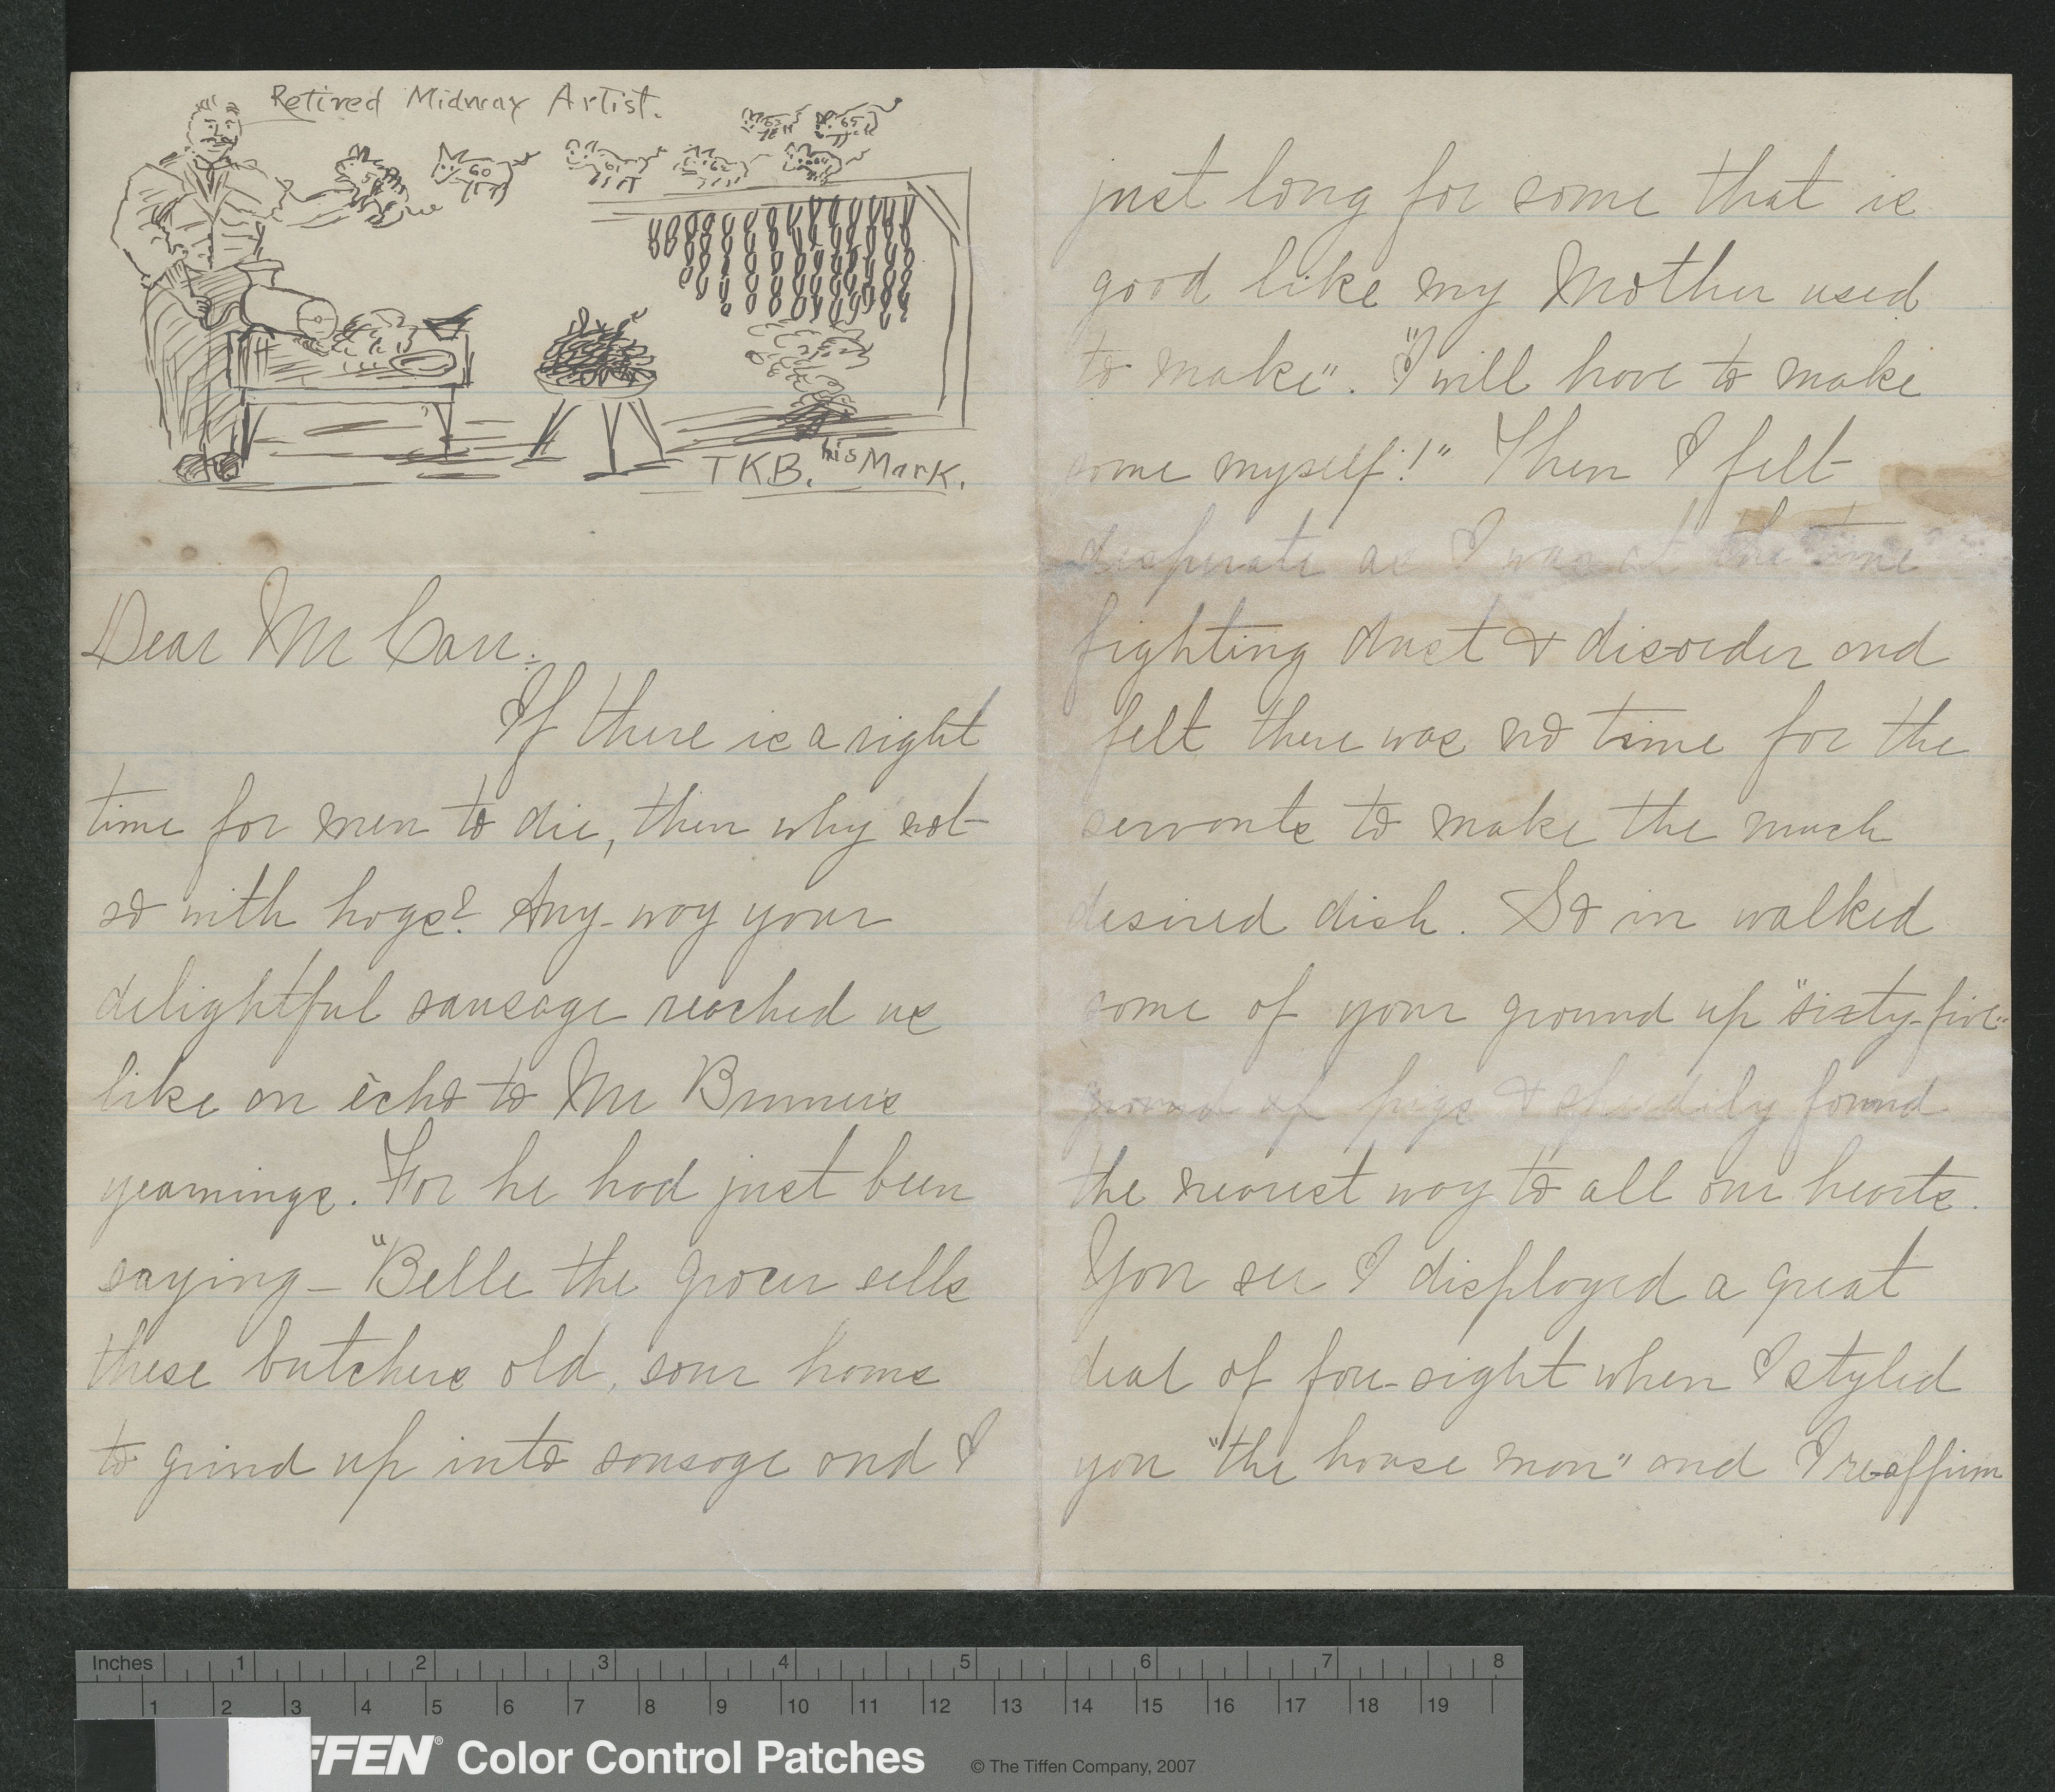 Retired Midway Artist.
60
61
62
64
63
65
TKB. his Mark.
Dear Mr Carr:
If there is a right
time for men to die, then why not
so with hogs? Any-way your
delightful sausage reached us
like an echo to Mr Bruner's
yearnings. For he had just been
saying – "Belle the grocer sells
these butchers old, sour hams
to grind up into sausage and I
just long for some that is
good like my Mother used
to make". "I will have to make
some myself!" Then I felt
desperate as I was at the time
fighting dust & disorder and
felt there was no time for the
servants to make the much
desired dish. So in walked
some of your ground up "sixty-five"
ground up pigs & speedily found
the nearest way to all our hearts.
You see I displayed a great
deal of fore-sight when I styled
you "the house man" and I re-affirm
Inches 1 2 3 4 5 6 7 8
1 2 3 4 5 6 7 8 9 10 11 12 13 14 15 16 17 18 19
FFEN® Color Control Patches © The Tiffen Company, 2007